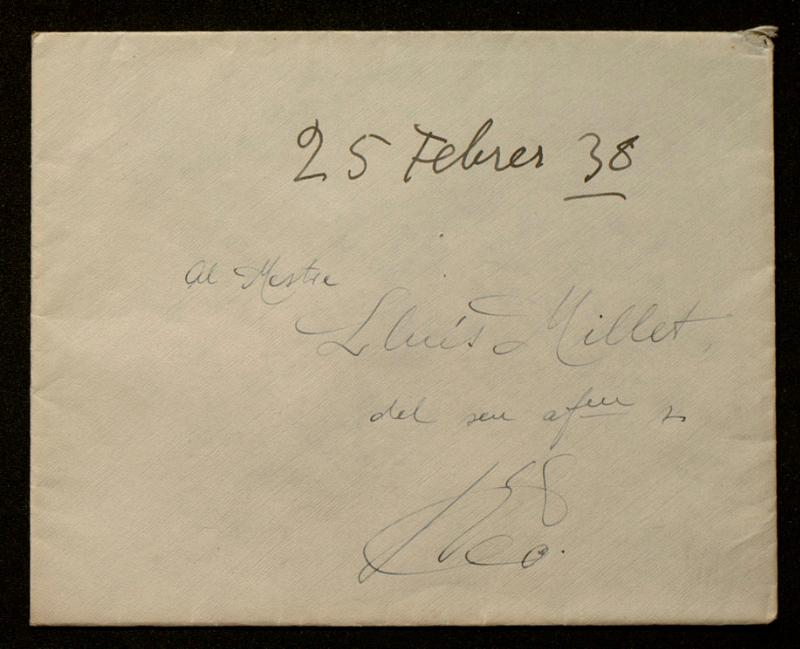 25 Febrer 38
Al Mestre
Lluís Millet,
del seu afm